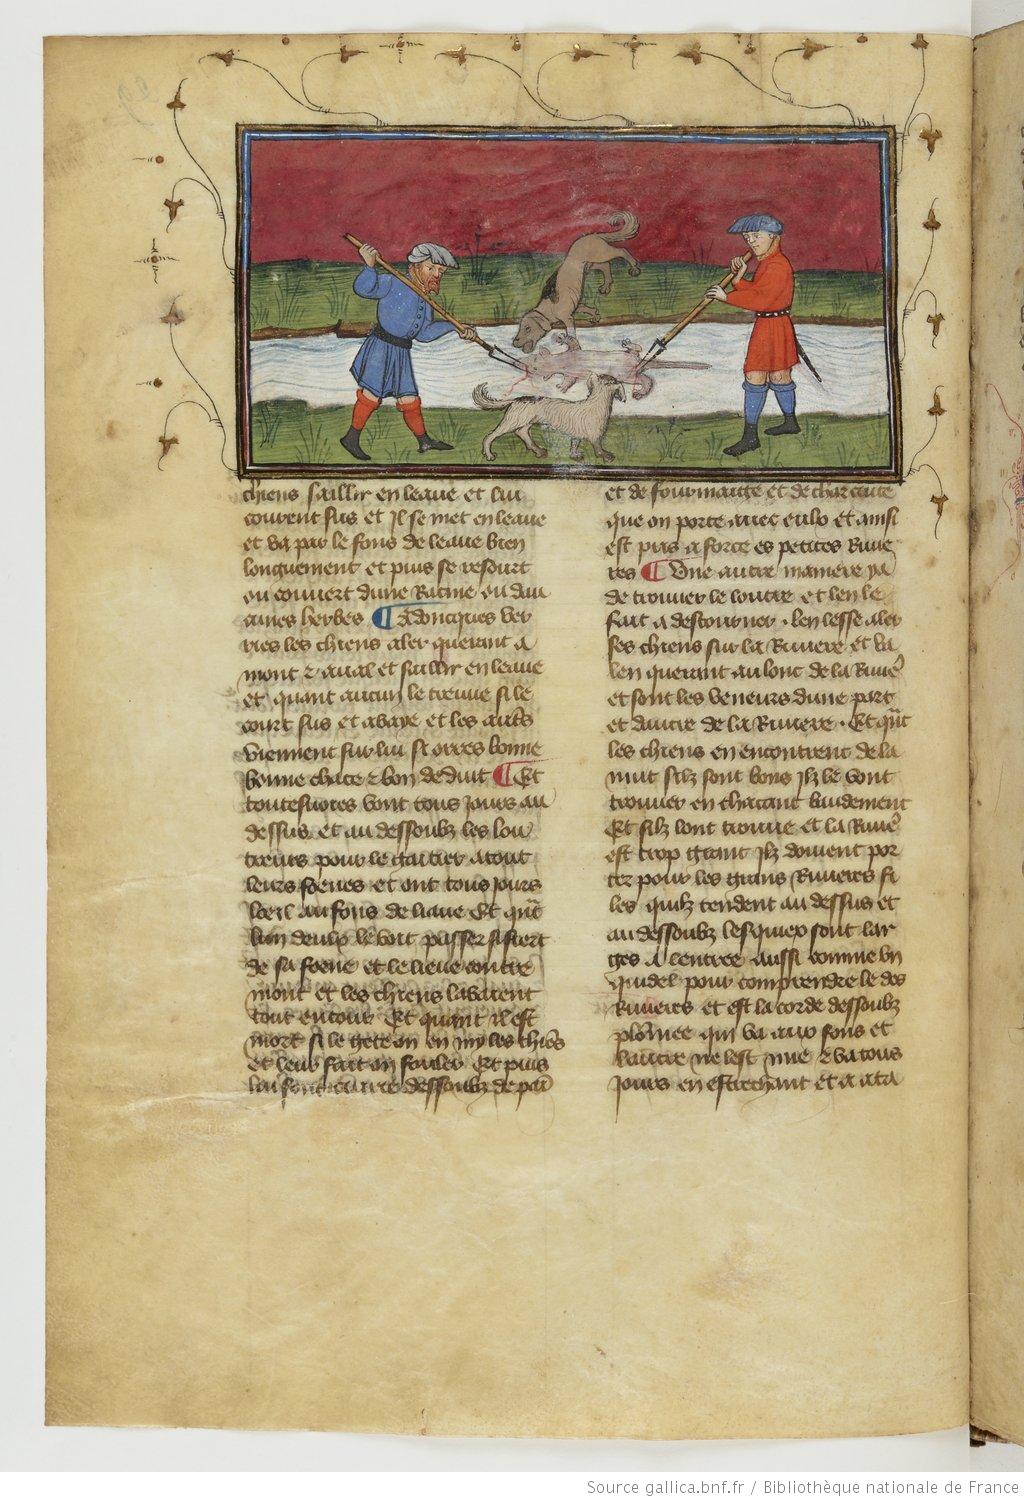 chiens saillir en leaue et lui
courent sus et Il se met en leaue
et va par le fons de leaue bien
longuement et puis se ressourt
ou couvert dune Racine ou dau
cunes herbes ¶ Adoncques ver
ries les chiens aler querant a
mont et aual et saillir en leaue
et quant aucun le treuue si le
court sus et abaye et les autres
viennent sur lui si orres bonne
bonne chace et bon deduit ¶ Et
toutesuoies vont tous Jours au
dessus et au dessoubz les lou
treurs pour le gaitier a tout
leurs foenes et ont tous Jours
loeil au fons de liaue Et quant
lun deulx le voit passer si fiert
de sa foene et le lieue contre
mont et les chiens labaient
tout entour Et quant il est
mort si le gete on en my les chiens
et leur fait on fouler Et puis
lui font dessoubz de pain
et de fourmaige et de char cuite
que on porte auec eulx et ainsi
est pris a force es petites Riuie
res ¶ Une autre maniere ya
de trouuer le loutre et len le
fait a destourner . len lesse aler
ses chiens sur la Riuiere et va
len querant au lonc de la Riuiere
et sont les veneurs dune part
et dautre de la Riuiere . Et quant
les chiens en encontrent de la
nuit silz sont bons Ilz le vont
trouuer en chacant baudement
Et silz lont trouue et la Riuiere
est trop grant Ilz doiuent por
ter pour les grans Riuieres fi
les quilz tendent au dessus et
au dessoubz lesquiex sont lar
ges a lentree aussi comme un
quidel pour comprendre le dos
Riuieres et est la corde dessoubz
plommee qui va aux fons et
lautre ne lest mie et va tous
Jours en estrechant et a ata
Source gallica.bnf.fr / Bibliothèque nationale de France